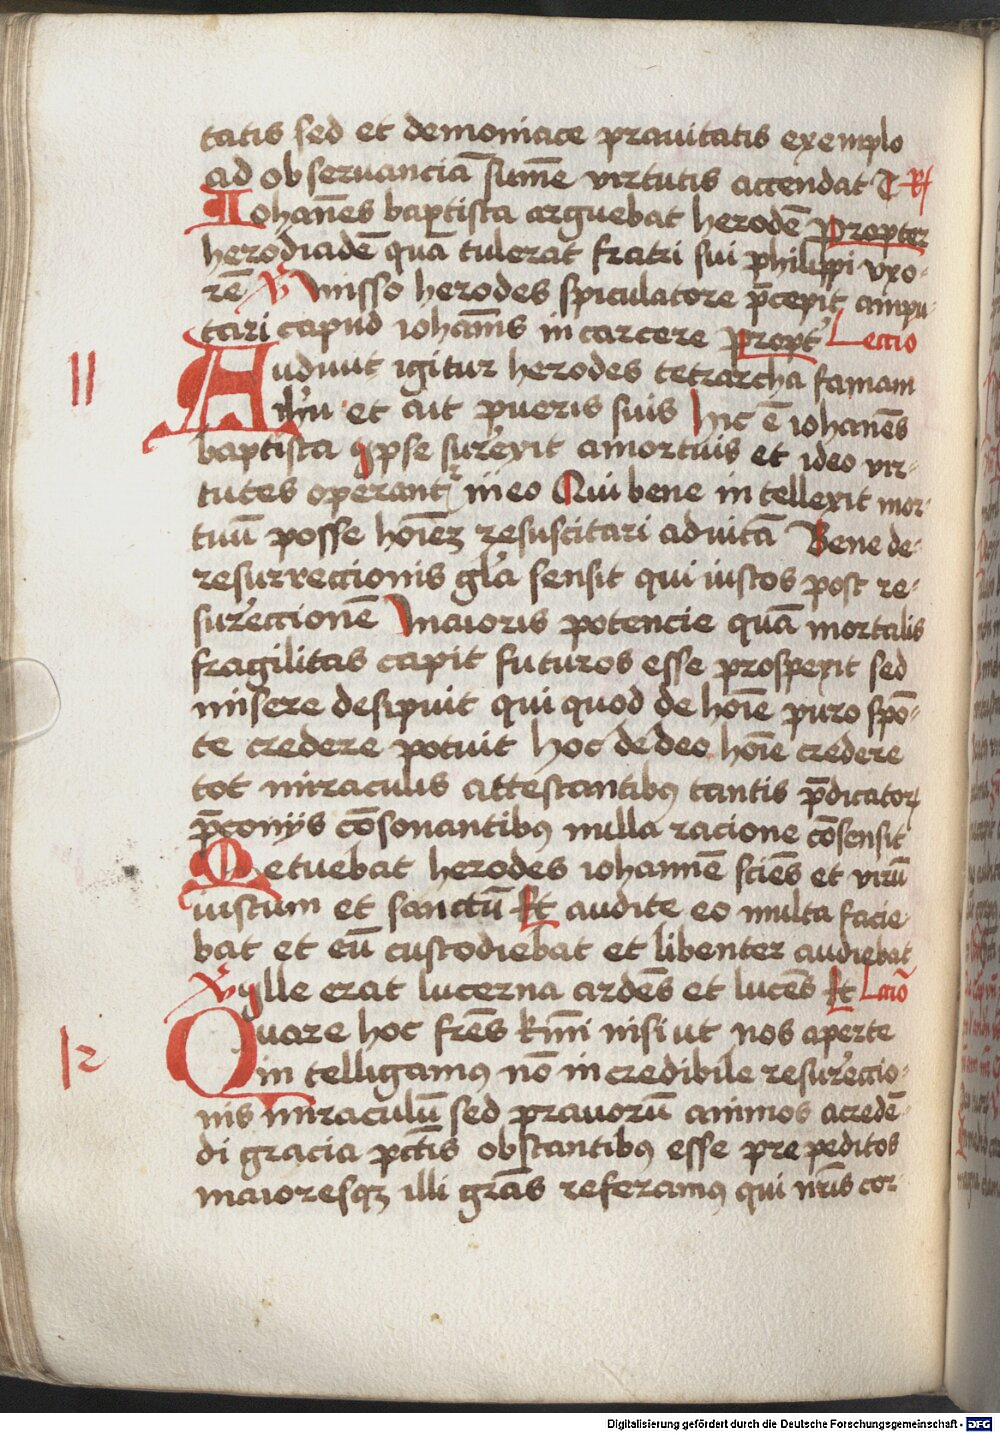 tatis sed et demoniace prauitatis exemplo
ad obseruanciā sum̄e virtutis accendat T R
Iohan̄es baptista arguebat herodē Propter
herodiadē quā tulerat fratri sui philippi vxo-
rē V Misso herodes spiculatore p̄cepit ampu-
tari capud iohan̄is in carcere Propt' Lectio
II
Audiuit igitur herodes tetrarcha famam
ih'u et ait pueris suis hic ē iohan̄es
baptista ipse sur'exit a mortuis et ideo vir-
tutes operant' in eo Qui bene intellexit mor-
tuū posse hoīez resuscitari ad vitā Bene de-
resurrectionis gl'a sensit qui iustos post re-
sur'ectionē Maioris potencie quā mortalis
fragilitas capit futuros esse prospexit sed
misere desipuit qui quod de hoīe puro spō-
te credere potuit hoc de deo hoīe credere
tot miraculis attestantibꝰ tantis p̄dicatoꝝ
p̄conijs cōsonantibꝰ nulla racione cōsensit
Metuebat herodes iohannē sciēs et virū
iustum et sanctū Et audite eo multa facie-
bat et eū custodiebat et libenter audiebat
V ylle erat lucerna ardēs et lucēs Et Lcio
12
Quare hoc fr̄es k̄mi nisi ut nos aperte
intelligamꝰ nō incredibile resur'ectio-
nis miraculū sed prauorū animos a credē-
di gracia pctīs obstantibꝰ esse prepeditos
maioresqꝫ illi gr̄as referamꝰ qui nr̄is cor-
Digitalisierung gefördert durch die Deutsche Forschungsgemeinschaft - DFG